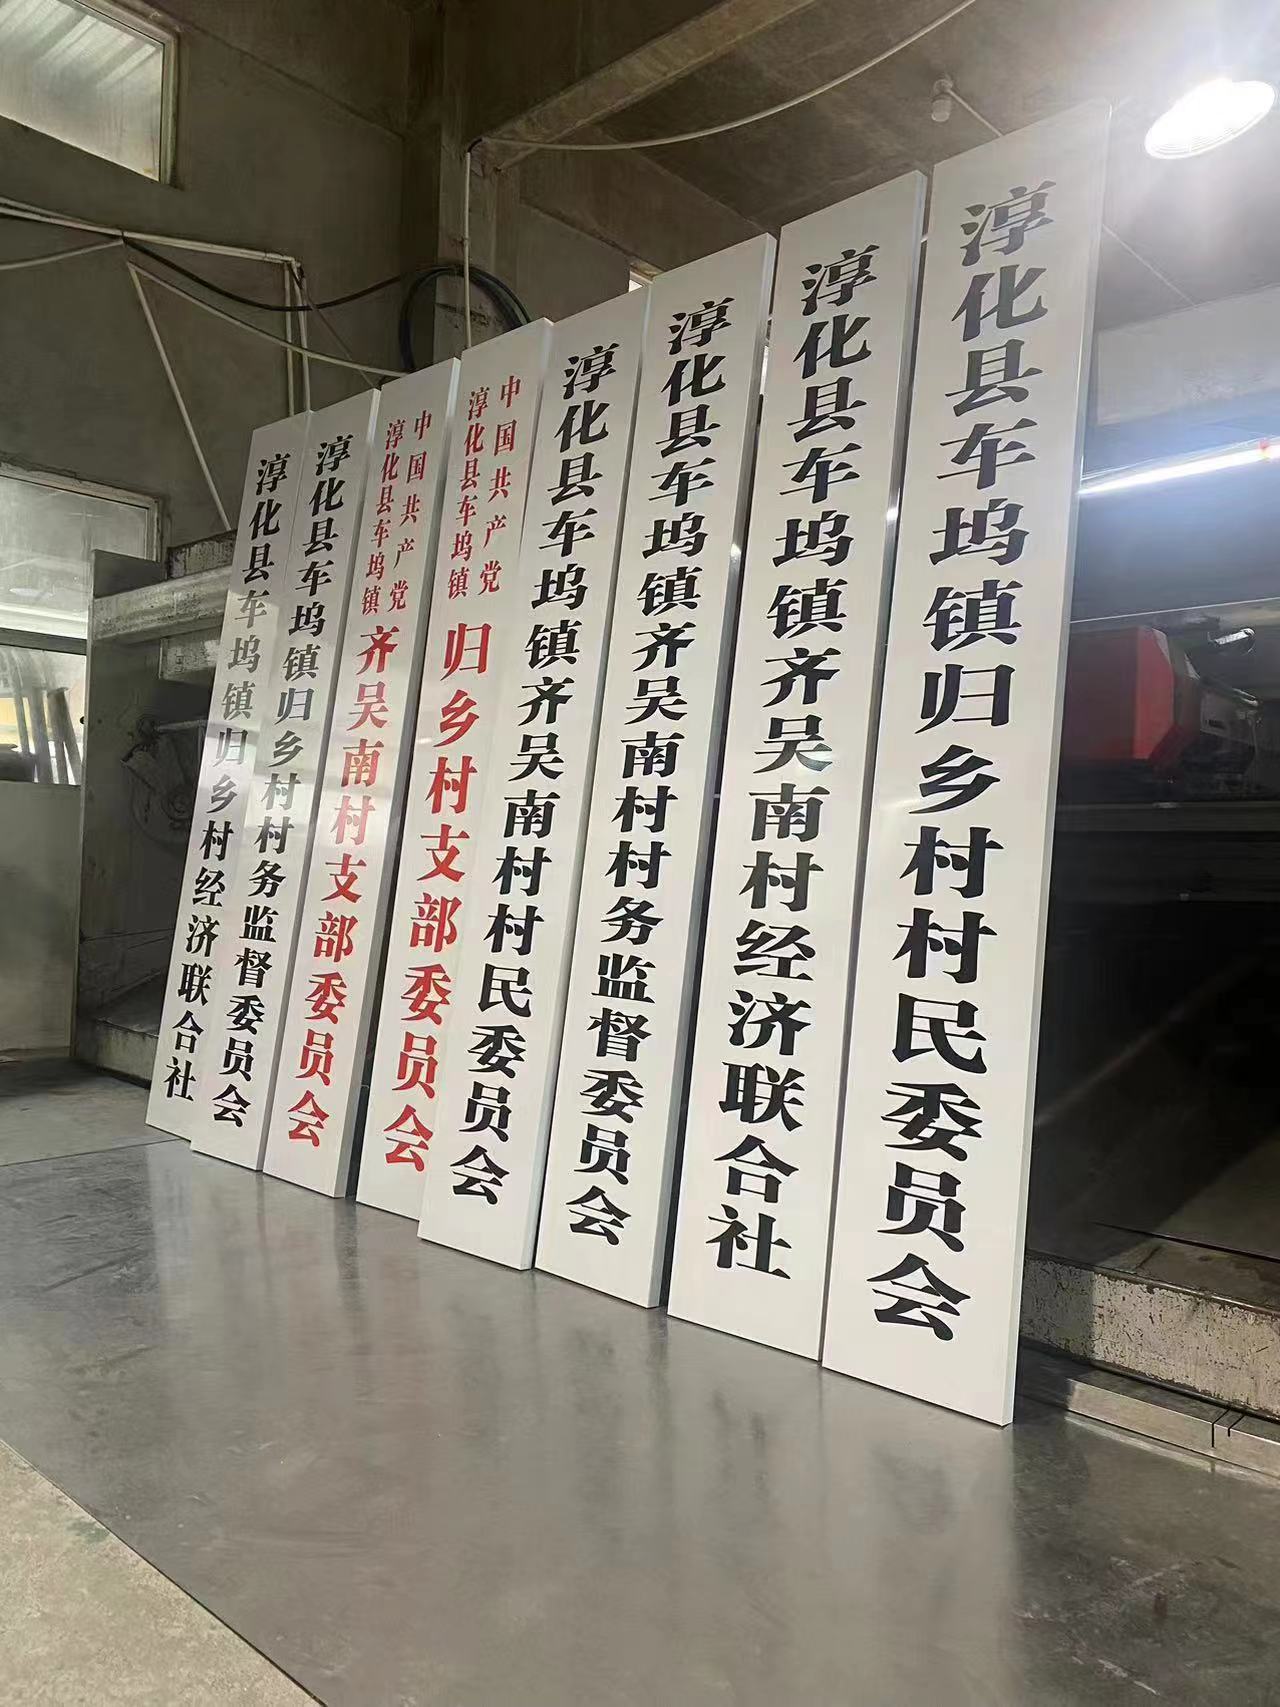 淳化县车坞镇归乡村经济联合社
淳化县车坞镇归乡村村务监督委员会
中国共产党
淳化县车坞镇
齐吴南村支部委员会
中国共产党
淳化县车坞镇
归乡村支部委员会
淳化县车坞镇齐吴南村村民委员会
淳化县车坞镇齐吴南村村务监督委员会
淳化县车坞镇齐吴南村经济联合社
淳化县车坞镇归乡村村民委员会